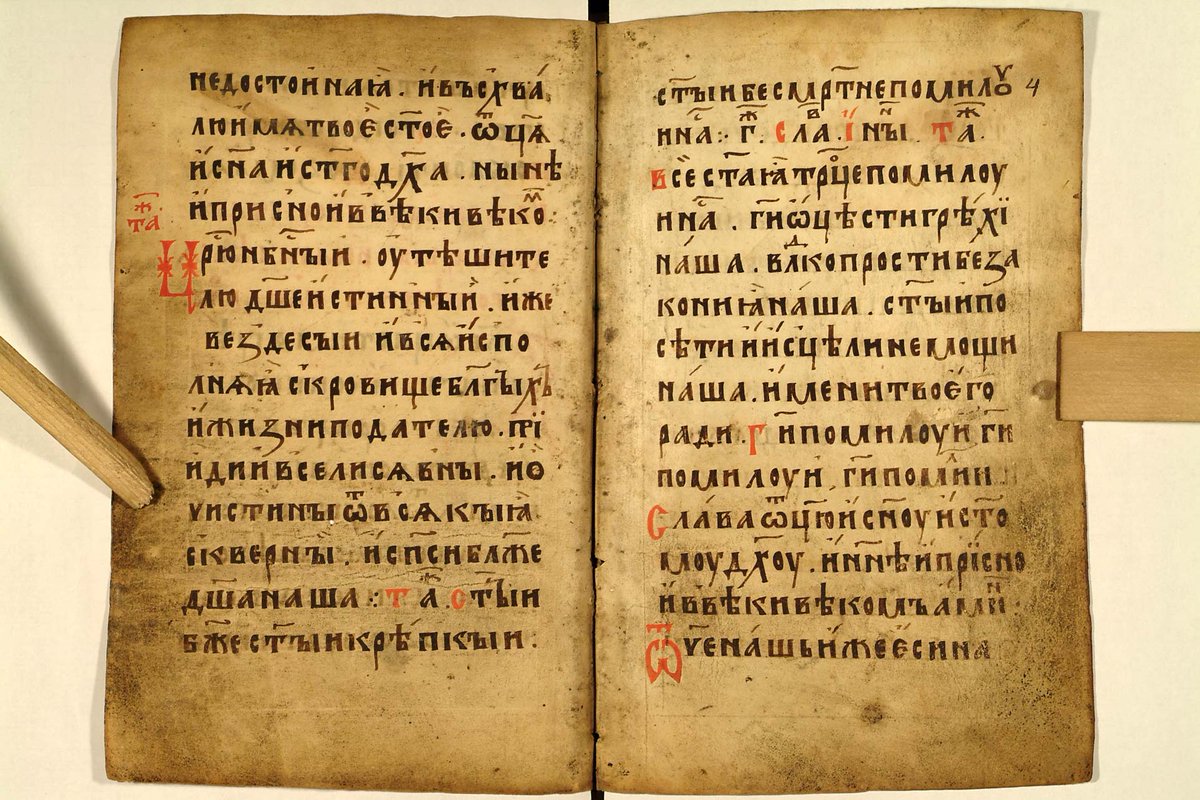 недостоинаꙗ҆ . и҆въсхва́
лю̀и҆мѧтвоє҆ст҃оє҆ . ѿц҃ѧ
и҆сн҃аи҆ст҃гд҃ха . нынѣ
и҆присноиввѣкивѣкоⷨ:
таⷤ
Цр҃юнб҃ныи . оутѣшите
лю дш҃еи҆стинныи . иже
вездесыи и҆всѧи҆спо
лнѧꙗ с꙼кровищебл҃гы̑хъ
и҆жизниподателю . прⷪ҇ї
идиивселисѧвны . и҆ѡ
ѵистины ѿвсѧкыꙗ
с꙼кверны . испⷭ҇ибл҃же
дш҃анаша : таⷤ . ст҃ыи
бж҃е ст҃ыикрѣпкыи .
ст҃ыибесмр҃тнепомилꙋ 4
инⷭ҇а : г҃ⷤ . слаⷡ . ї нн҃ы таⷤ .
всест҃аꙗтрⷪ҇цепомилоу
ина́с . г҃иѡцѣстигрѣхї
на́ша . влⷣкопростибеза
кониꙗна́ша . ст҃ыипо
сѣтиии҆сцѣлинемощи
на́ша . и҆менитвоє҆го
ради . г҃ и҃помилоуи г҃и
помилоуи г҃ипомⷧии
Славаѿц҃юи҆сн҃оуист҃о
моуд҃хоу . и҆нн҃ѣи҆при҆сно
и҆ввѣкивѣкомъами҃ :
Ѿѵена́шьи҆жеєси на